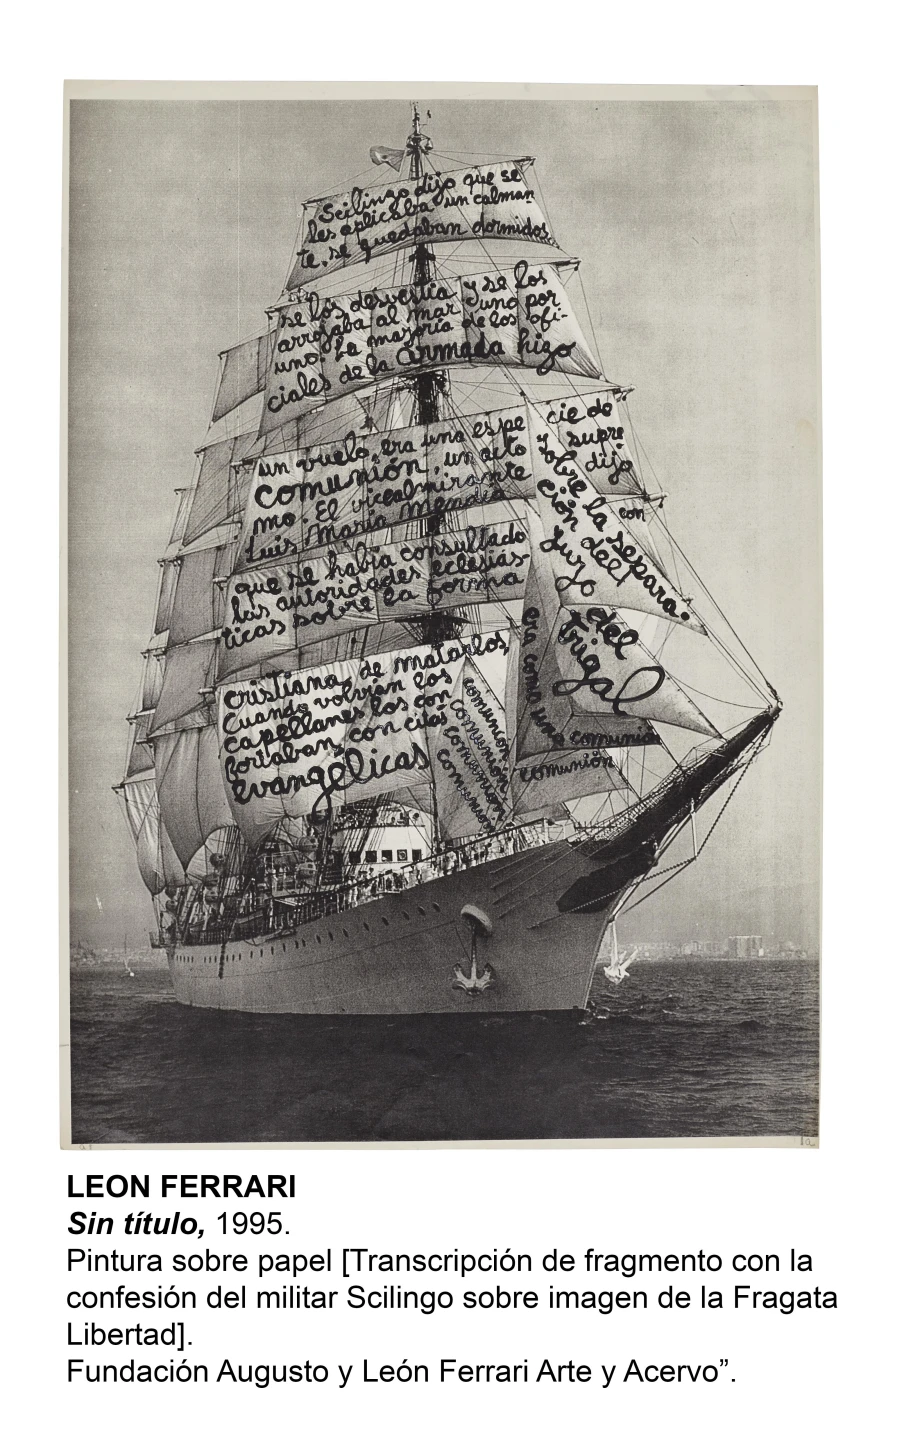 Scilingo dijo que se
les aplicaba un calman
te, se quedaban dormidos,
se los desvestia y se los
arrojaba al mar uno por
uno. La mayoría de los ofi-
ciales de la armada hizo
un vuelo, era una espe
cie de
comunión, un acto
y supre
mo. El vicealmirante
Luis María Mendía
dijo
que se había consultado
con
las autoridades eclesiás-
ticas sobre la forma
cristiana de matarlos
Cuando volvían los
capellanes los con
fortaban con citas
evangélicas
sobre la separa
ción del
yuyo del
trigal
era como una comunión
comunión
comunión
comunión
comunión
comunión
LEON FERRARI
Sin título, 1995.
Pintura sobre papel [Transcripción de fragmento con la
confesión del militar Scilingo sobre imagen de la Fragata
Libertad].
Fundación Augusto y León Ferrari Arte y Acervo”.